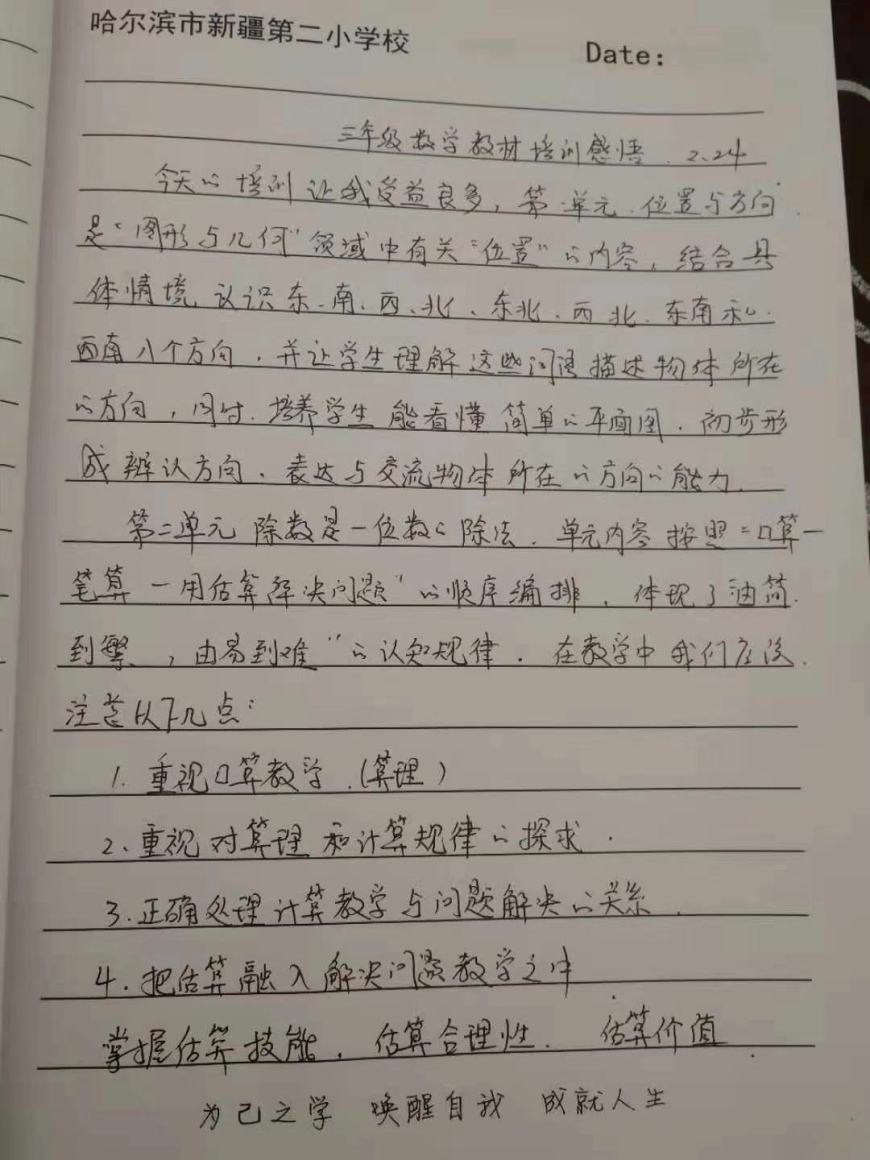 哈尔滨市新疆第二小学校
Date:
三年级数学教材培训感悟. 2.24
今天的培训让我受益良多，第一单元.位置与方向
是“图形与几何”领域中有关“位置”的内容，结合具
体情境，认识东、南、西、北、东北、西北、东南和
西南八个方向，并让学生理解这些词语描述物体所在
的方向，同时.培养学生能看懂简单的平面图.初步形
成辨认方向、表达与交流物体所在的方向的能力.
第二单元 除数是一位数的除法.单元内容按照“口算—
笔算—用估算解决问题”的顺序编排，体现了油简
到繁，由易到难”的认知规律.在教学中我们应该
注意以下几点：
1.重视口算教学.(算理)
2.重视对算理和计算规律的探求.
3.正确处理计算教学与问题解决的关系.
4.把估算融入解决问题教学之中
掌握估算技能，估算合理性. 估算价值
为己之学 唤醒自我 成就人生